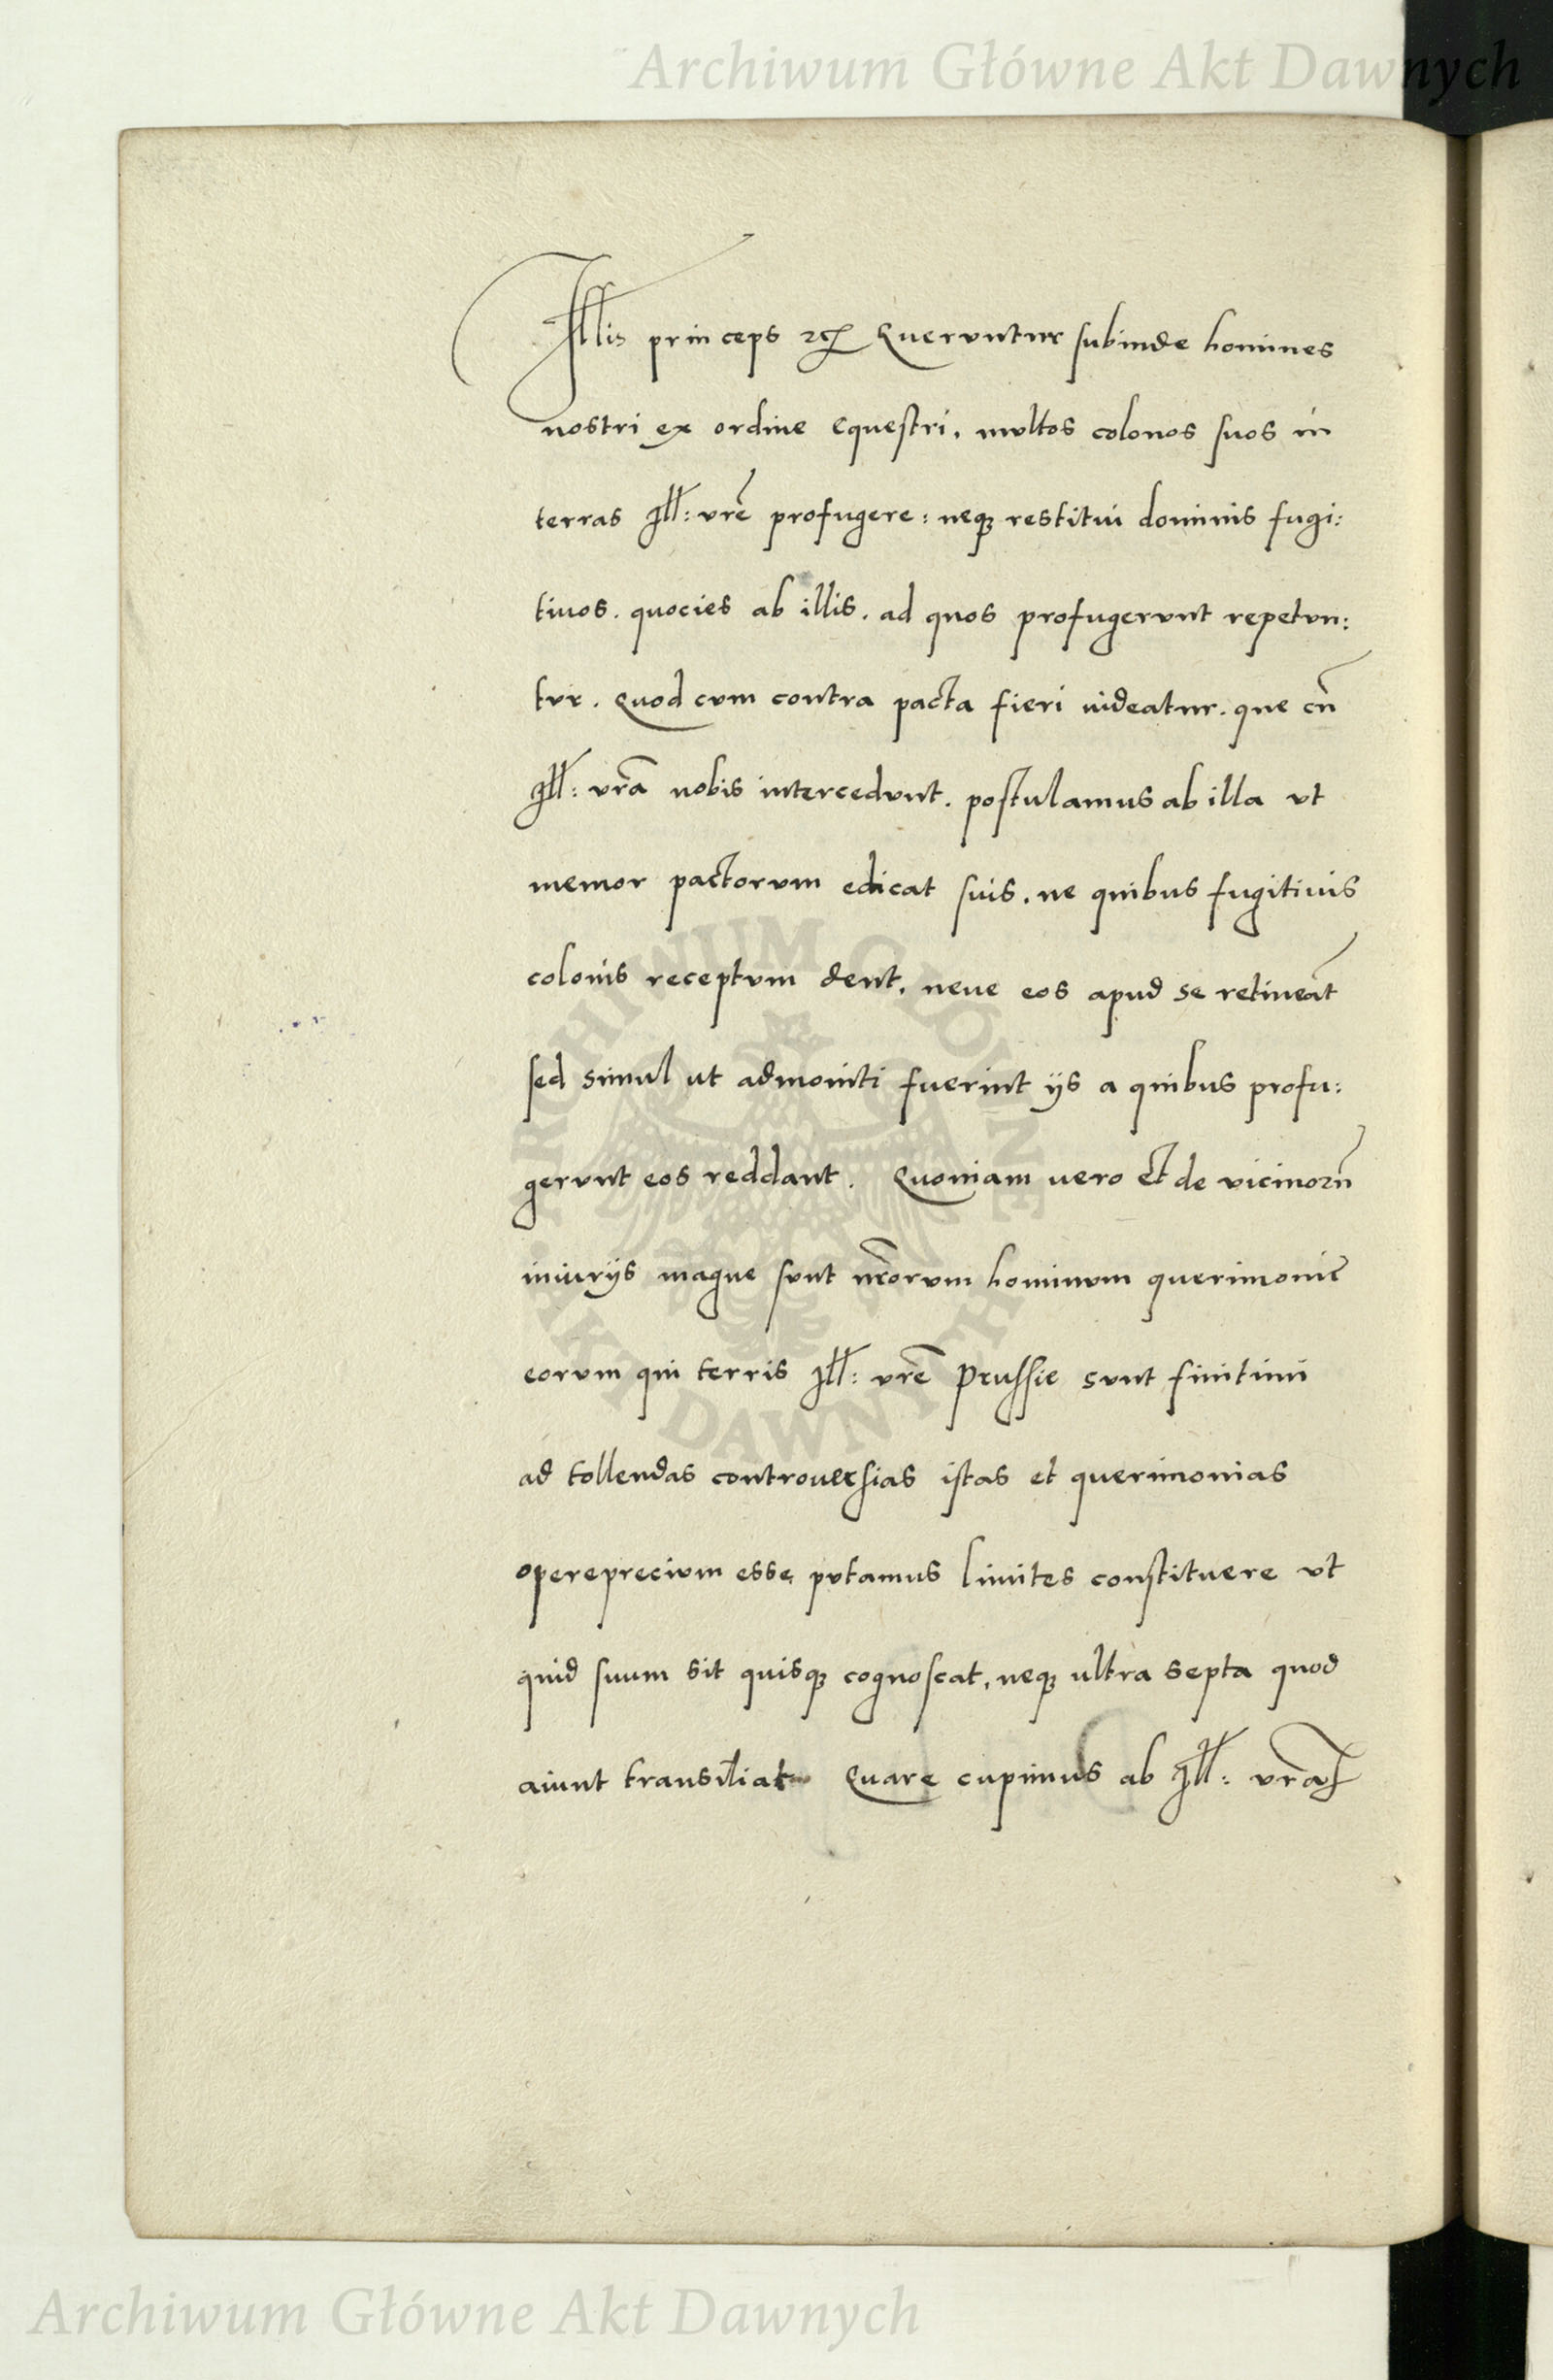 Archiwum Główne Akt Dawnych
Illis princeps etc Queruntur subinde homines
nostri ex ordine equestri. multos colonos suos in
terras Ill: vrẽ profugere: neq; restitui dominis fugi:
tiuos. quocies ab illis. ad quos profugerunt repetun:
tur. Quod cum contra pacta fieri uideatur. que cũ
Ill: vrã nobis intercedunt. postulamus ab illa ut
memor pactorum edicat suis. ne quibus fugitiuis
colonis receptum dent. neue eos apud se retineãt
sed simul ut admoniti fuerint ijs a quibus profu:
gerunt eos reddant. Quoniam vero et de vicinorũ
iniurijs magne sunt nr̃orum hominum querimonie
eorum qui terris Ill: vrẽ Prussie sunt finitimi
ad tollendas controuersias istas et querimonias
opereprecium esse putamus limites constituere ut
quid suum sit quisq; cognoscat, neq; ultra septa quod
aiunt transiliat Quare cupimus ab Ill: vrã
ARCHIWUM GŁÓWNE
AKT DAWNYCH
Archiwum Główne Akt Dawnych